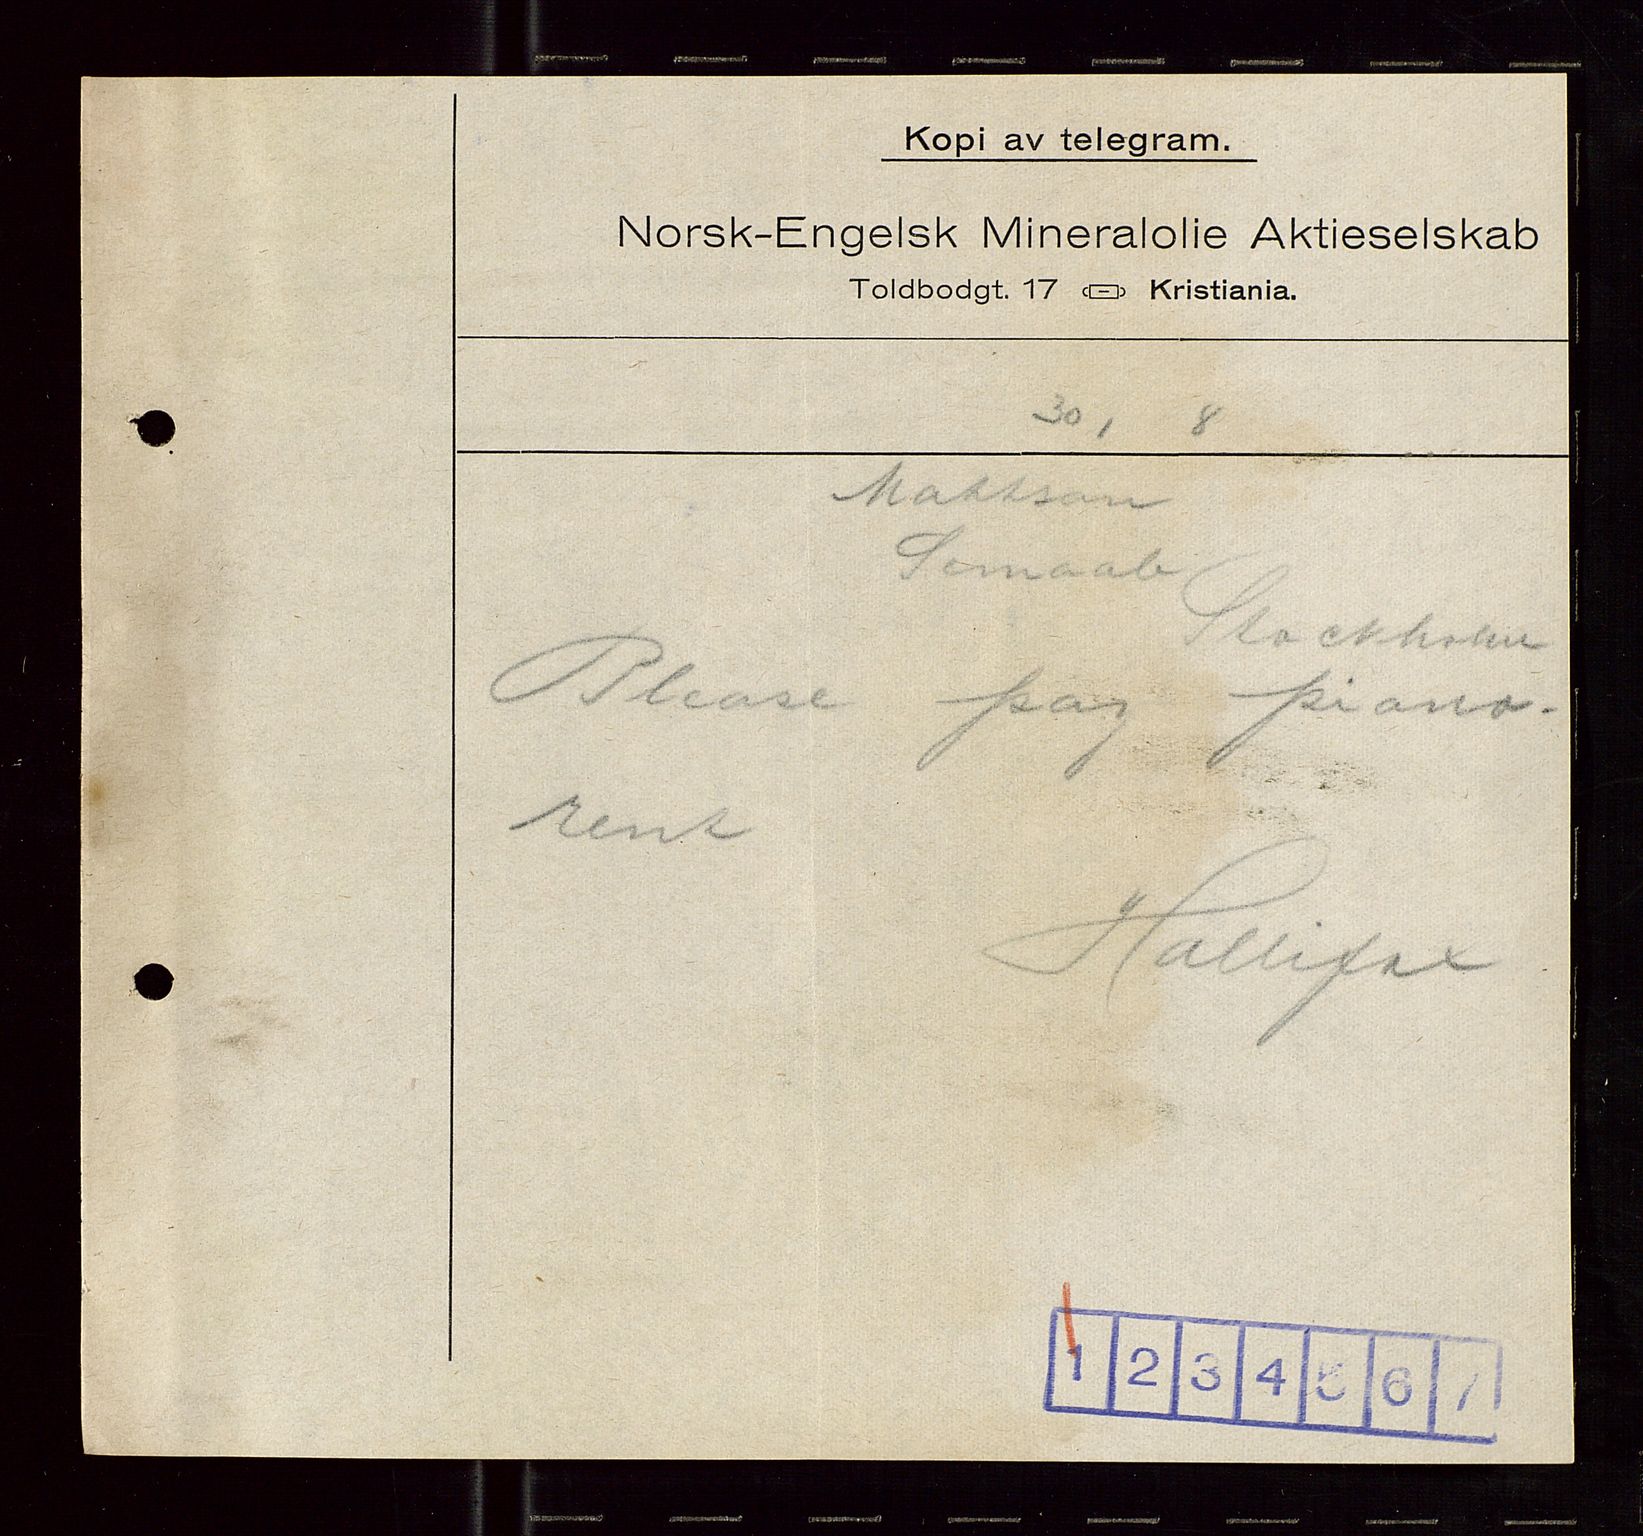 Kopi av telegram.
Norsk-Engelsk Mineralolie Aktieselskab
Toldbodgt. 17 Kristiania.
30, 8
Mattson
Semaab
Stockholm
Please pay piano-
rent
Hallifax
1 2 3 4 5 6 7